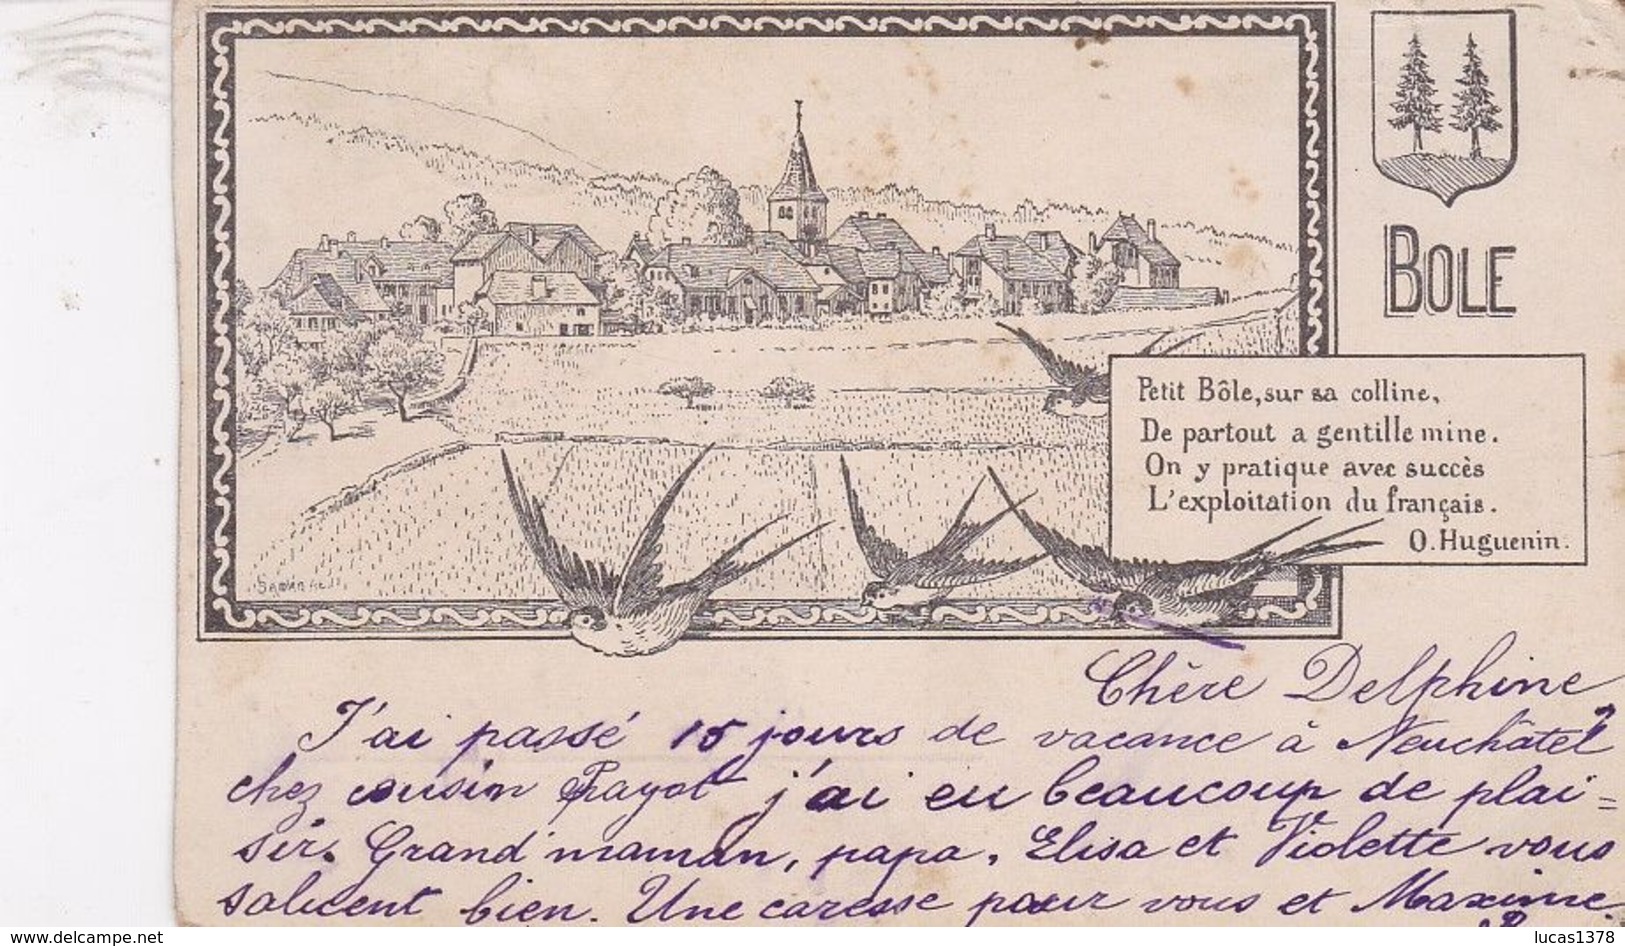 BOLE
Petit Bôle, sur sa colline,
De partout a gentille mine.
On y pratique avec succès
L'exploitation du français.
O. Huguenin.
Chère Delphine
J'ai passé 15 jours de vacance à Neuchâtel
chez cousin Payot j'ai eu beaucoup de plai=
sir. Grand'maman, papa, Elisa et Violette vous
saluent bien. Une caresse pour vous et Maxime.
www.delcampe.net
lucas1378